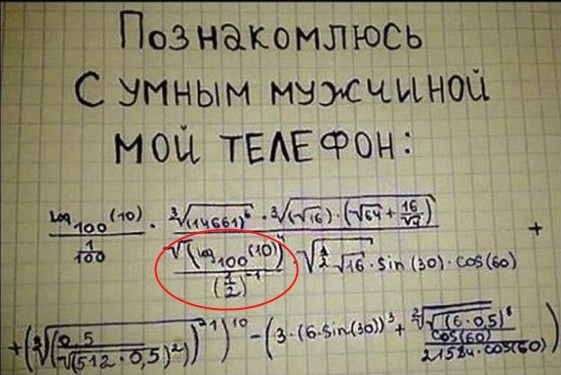 ПОЗНАКОМЛЮСЬ
С УМНЫМ МУЖЧИНОЙ
МОЙ ТЕЛЕФОН:
log₁₀₀(10) / (1/100) · ³√(14661)⁶ · ³√((√16)·(√64 + 16/√4)) / (√(log₁₀₀(10))⁴ / (1/2)⁻¹ · √(1/2 √16) · sin(30) · cos(60)) +
+ (³√(0,5 / √(512·0,5)²))²¹)¹⁰ − (3·(6·sin(30))³ + ³√(√(6·0,5)⁸ / cos(60)) / 21584·cos(60))